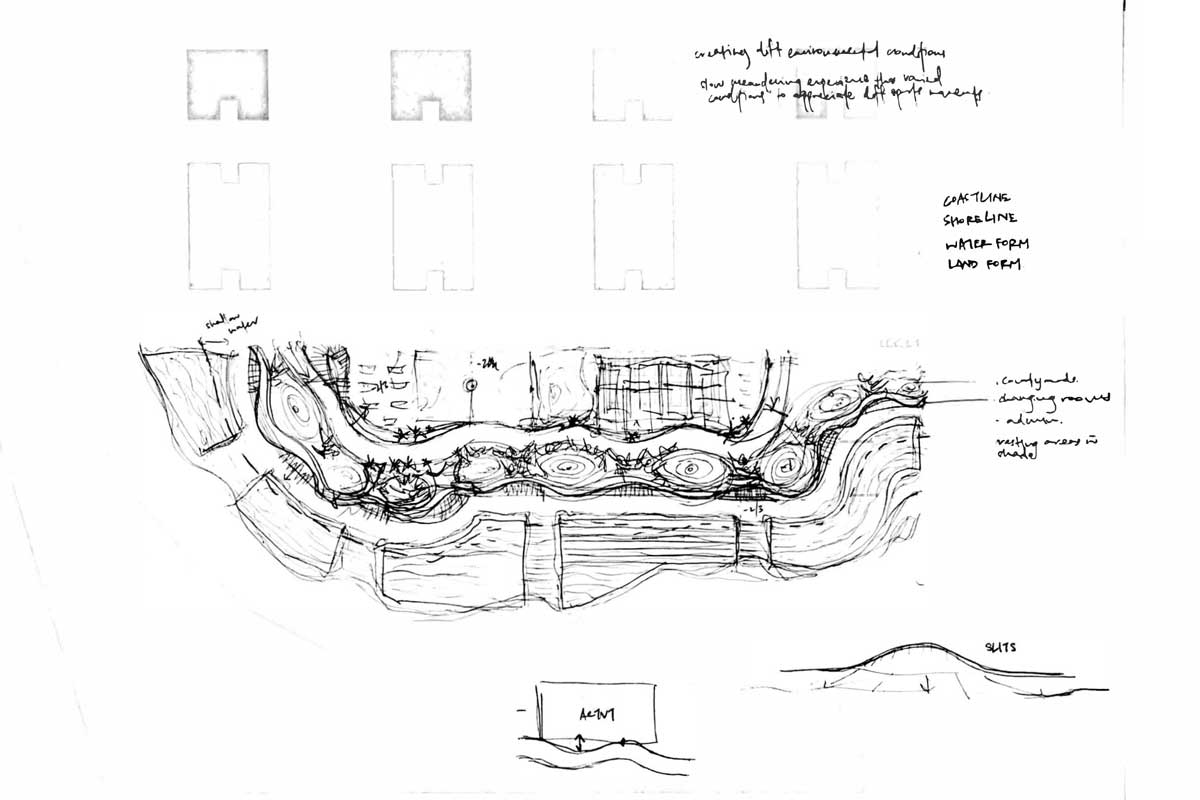 creating diff environmental conditions
slow meandering experience thru varied
conditions to appreciate diff sports
COASTLINE
SHORELINE
WATER FORM
LAND FORM
shallow
water
. courtyards.
. changing rooms
- admin.
resting areas in
shade
SLITS